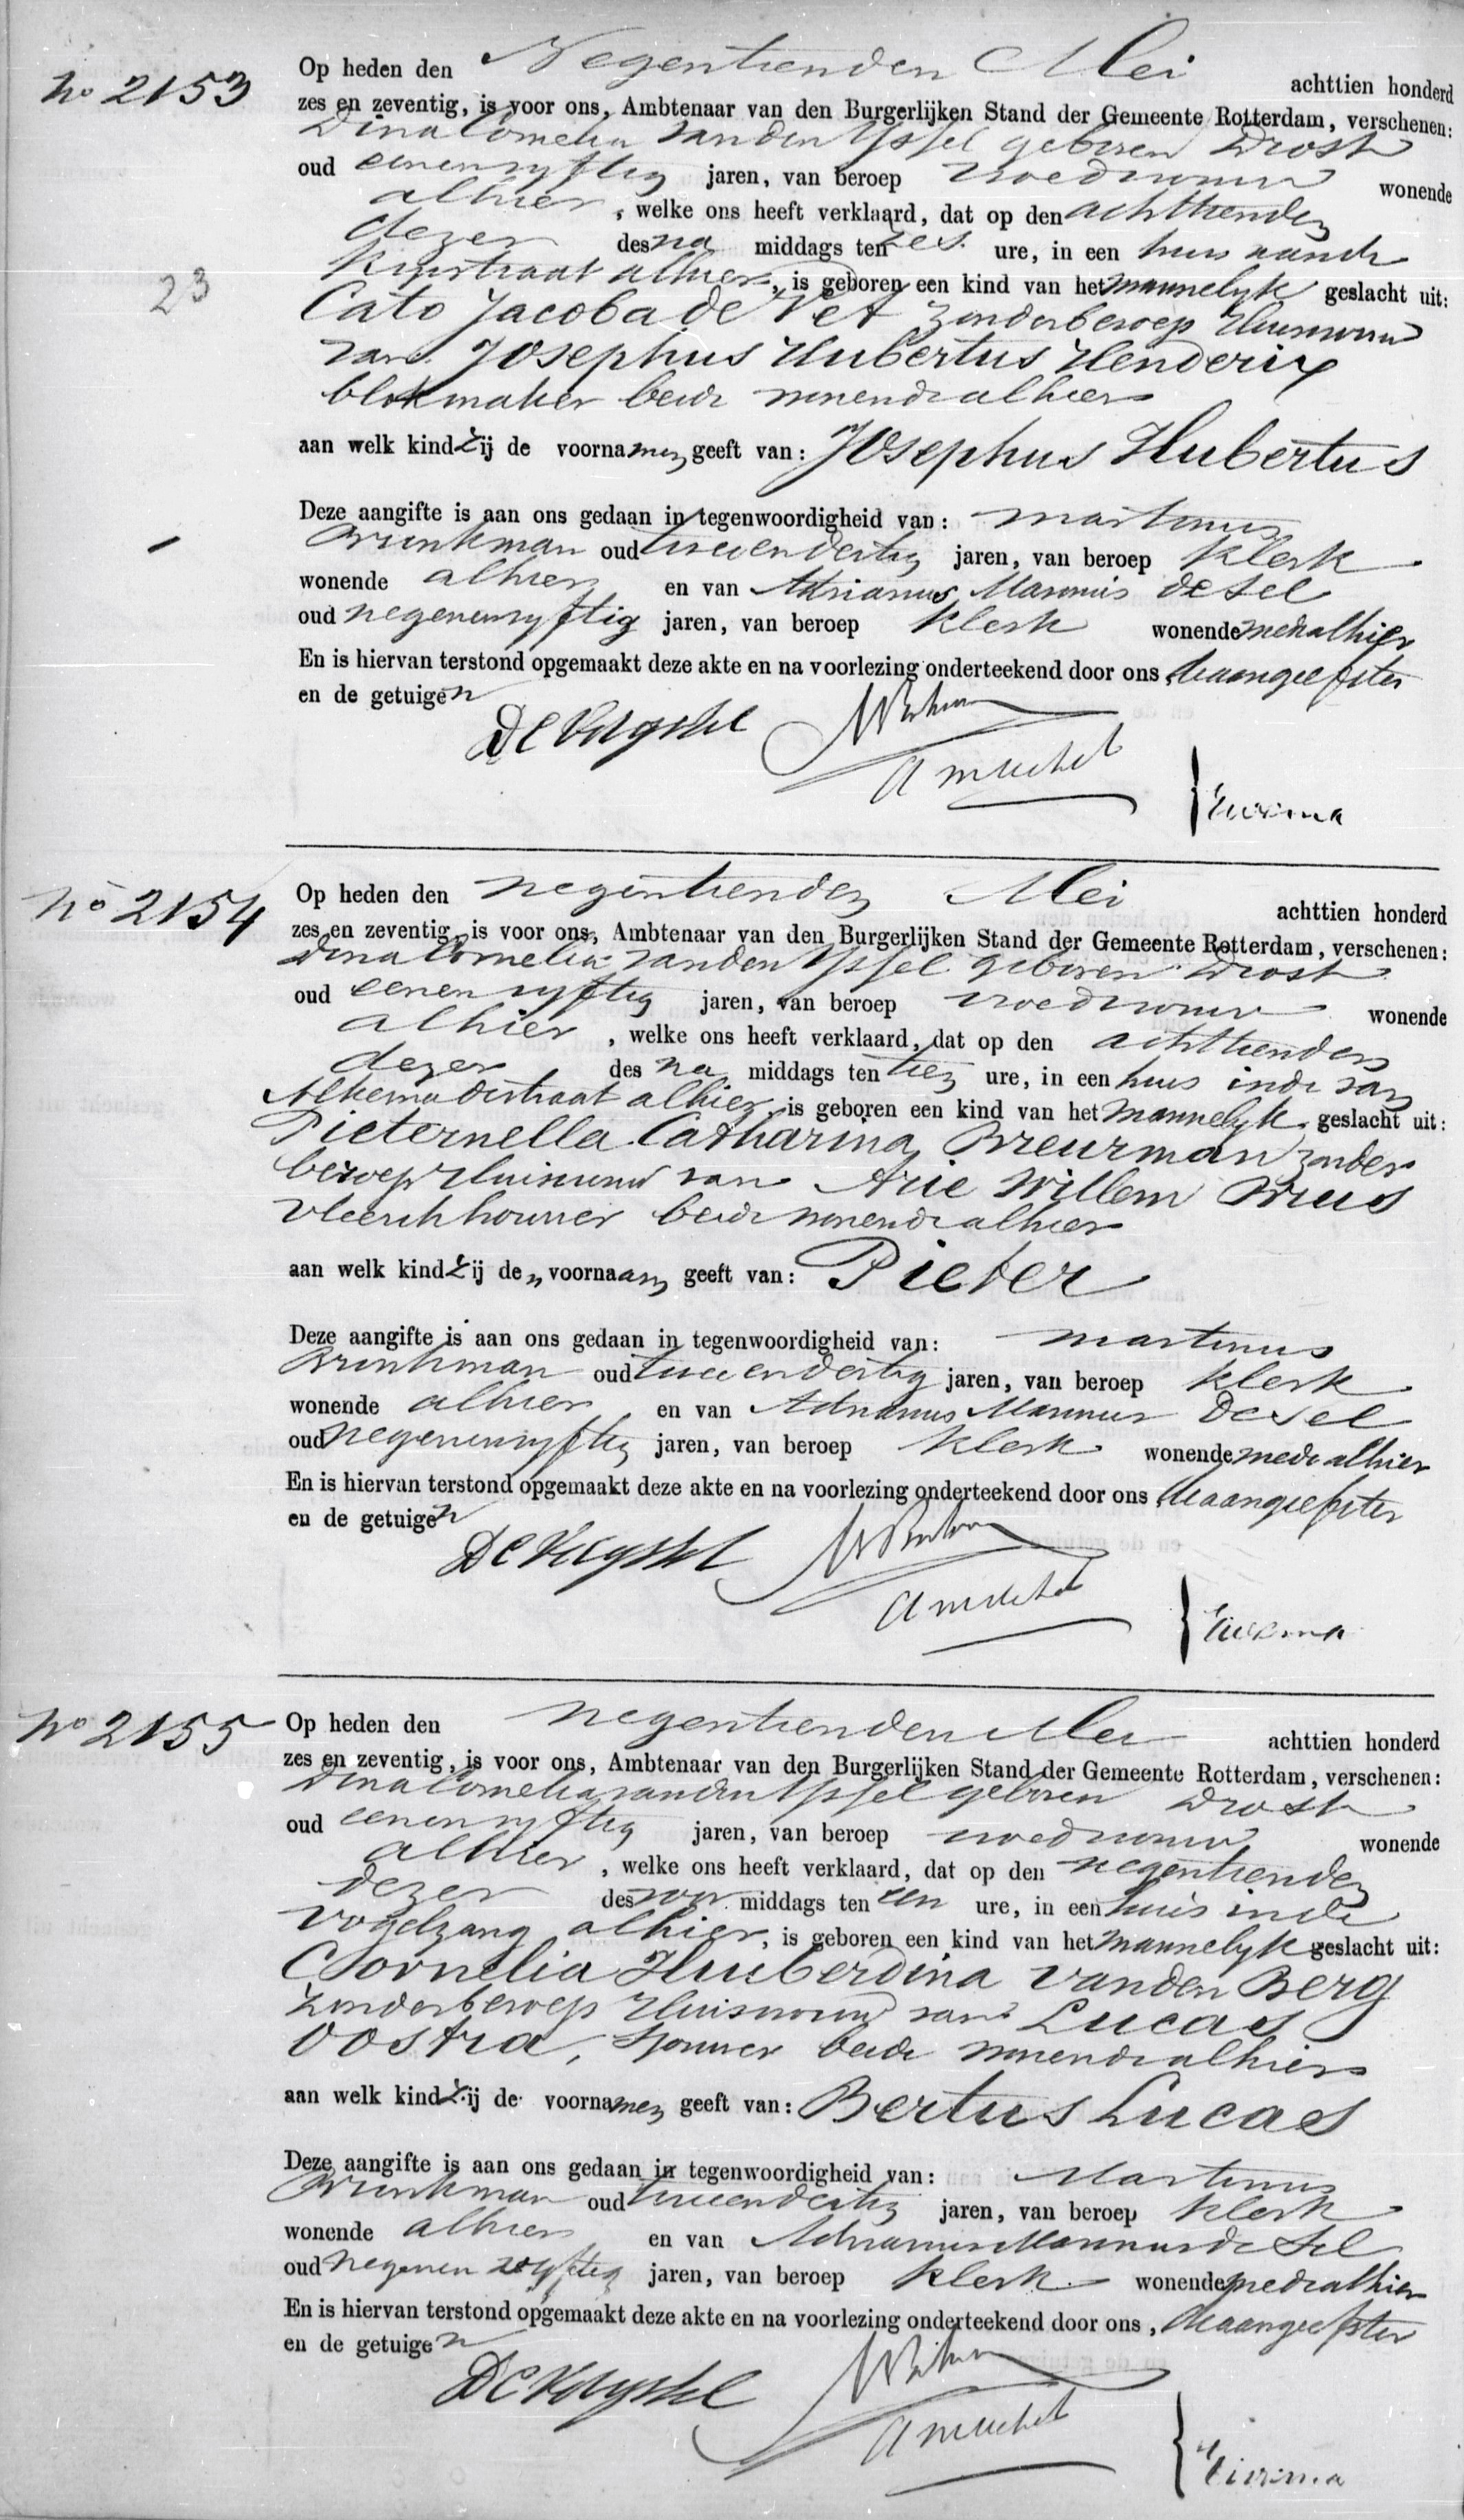 No 2153
Op heden den Negentienden Mei achttien honderd
zes en zeventig, is voor ons, Ambtenaar van den Burgerlijken Stand der Gemeente Rotterdam, verschenen:
Dina Cornelia van den Yssel geboren Drost
oud eenenvyftig jaren, van beroep vroedvrouw wonende
alhier, welke ons heeft verklaard, dat op den achttienden
dezer des na middags ten zes ure, in een huis aande
alhier, is geboren een kind van het mannelyk geslacht uit:
Cato Jacoba de Vet zonder beroep Huisvrouw
van Josephus Hubertus Henderix
blokmaker beide wonende alhier
aan welk kind Zij de voornamen geeft van: Josephus Hubertus
Deze aangifte is aan ons gedaan in tegenwoordigheid van: Martinus
Brinkman oud tweeendertig jaren, van beroep Klerk
wonende alhier en van Adrianus Marinus de Sel
oud negenenvyftig jaren, van beroep Klerk wonende mede alhier
En is hiervan terstond opgemaakt deze akte en na voorlezing onderteekend door ons, de aangeefster
en de getuigen
23
No 2154
Op heden den negentienden Mei achttien honderd
zes en zeventig, is voor ons, Ambtenaar van den Burgerlijken Stand der Gemeente Rotterdam, verschenen:
Dina Cornelia van den Yssel geboren Drost
oud eenenvyftig jaren, van beroep vroedvrouw wonende
alhier, welke ons heeft verklaard, dat op den achttienden
dezer des na middags ten tien ure, in een huis inde van
Alkemadestraat alhier, is geboren een kind van het mannelyk geslacht uit:
Pieternella Catharina Breurman zonder
beroep Huisvrouw van Arie Willem Prius
Vleeschhouwer beide wonende alhier
aan welk kind Zij de voornaam geeft van: Pieter
Deze aangifte is aan ons gedaan in tegenwoordigheid van: Martinus
Brinkman oud tweeendertig jaren, van beroep Klerk
wonende alhier en van Adrianus Marinus de Sel
oud negenenvyftig jaren, van beroep Klerk wonende mede alhier
En is hiervan terstond opgemaakt deze akte en na voorlezing onderteekend door ons, de aangeefster
en de getuigen
No 2155
Op heden den negentienden Mei achttien honderd
zes en zeventig, is voor ons, Ambtenaar van den Burgerlijken Stand der Gemeente Rotterdam, verschenen:
Dina Cornelia van den Yssel geboren Drost
oud eenenvyftig jaren, van beroep vroedvrouw wonende
alhier, welke ons heeft verklaard, dat op den negentienden
dezer des voor middags ten een ure, in een huis inde
Vogelzang alhier, is geboren een kind van het mannelyk geslacht uit:
Cornelia Huberdina van den Berg
zonder beroep Huisvrouw van Lucas
Oostra, sjouwer beide wonende alhier
aan welk kind Zij de voornamen geeft van: Bertus Lucas
Deze aangifte is aan ons gedaan in tegenwoordigheid van: Martinus
Brinkman oud tweeendertig jaren, van beroep Klerk
wonende alhier en van Adrianus Marinus de Sel
oud negenenvyftig jaren, van beroep Klerk wonende mede alhier
En is hiervan terstond opgemaakt deze akte en na voorlezing onderteekend door ons, de aangeefster
en de getuigen